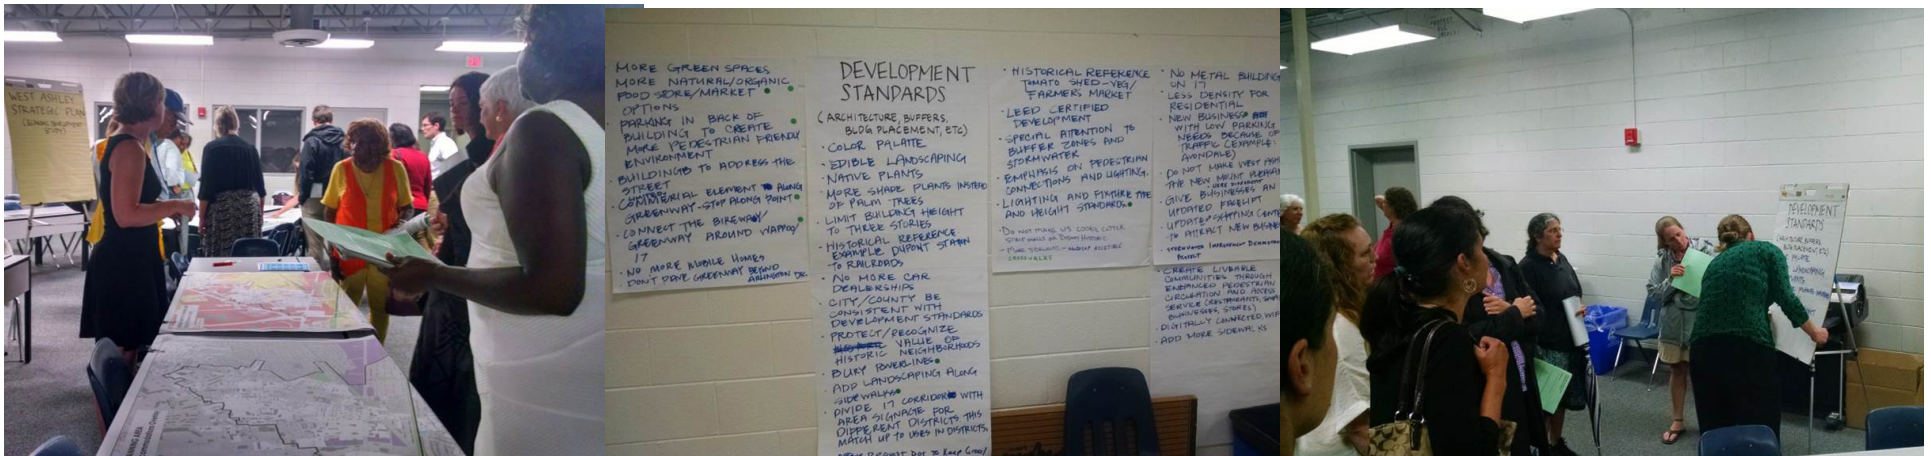 WEST ASHLEY
STRATEGIC PLAN
MORE GREEN SPACES
MORE NATURAL/ORGANIC
FOOD STORE/MARKET
OPTIONS
PARKING IN BACK OF
BUILDING TO CREATE
MORE PEDESTRIAN FRIENDLY
ENVIRONMENT
BUILDINGS TO ADDRESS THE
STREET
COMMERCIAL ELEMENT ALONG
GREENWAY-STOP ALONG POINT
CONNECT THE BIKEWAY/
GREENWAY AROUND WAPPOO/
17
NO MORE MOBILE HOMES
DON'T PAVE GREENWAY BEYOND
ARLINGTON DR.
DEVELOPMENT
STANDARDS
(ARCHITECTURE, BUFFERS,
BLDG PLACEMENT, ETC)
• COLOR PALATTE
• EDIBLE LANDSCAPING
• NATIVE PLANTS
• MORE SHADE PLANTS INSTEAD
OF PALM TREES
• LIMIT BUILDING HEIGHT
TO THREE STORIES
• HISTORICAL REFERENCE
EXAMPLE DUPONT STATION
TO RAILROADS
• NO MORE CAR
DEALERSHIPS
• CITY/COUNTY BE
CONSISTENT WITH
DEVELOPMENT STANDARDS
• PROTECT/RECOGNIZE
VALUE OF
HISTORIC NEIGHBORHOODS
• BURY POWERLINES
• ADD LANDSCAPING ALONG
SIDEWALKS
• DIVIDE 17 CORRIDOR WITH
AREA SIGNAGE FOR
DIFFERENT DISTRICTS THIS
MATCH UP TO USES IN DISTRICTS.
• HISTORICAL REFERENCE
TOMATO SHED-VEG/
FARMERS MARKET
• LEED CERTIFIED
DEVELOPMENT
• SPECIAL ATTENTION TO
BUFFER ZONES AND
STORMWATER
• EMPHASIS ON PEDESTRIAN
CONNECTIONS AND LIGHTING.
• LIGHTING AND FIXTURE TYPE
AND HEIGHT STANDARDS.
• DO NOT MAKE US COOKIE CUTTER
STRIP MALLS OR
CROSSWALKS
• NO METAL BUILDING
ON 17
• LESS DENSITY FOR
RESIDENTIAL
• NEW BUSINESS
WITH LOW PARKING
NEEDS BECAUSE OF
TRAFFIC (EXAMPLE:
AVONDALE)
• DO NOT MAKE WEST ASH
THE NEW MOUNT PLEASAN
• GIVE BUSINESSES AN
UPDATED FACELIFT
• UPDATE SHOPPING CENT
TO ATTRACT NEW BUSINE
• STORMWATER IMPROVEMENT
PROJECT
• CREATE LIVEABLE
COMMUNITIES THROUGH
ENHANCED PEDESTRIAN
CIRCULATION AND ACCESS
SERVICE (RESTAURANTS,
BUSINESSES, STORES)
• DIGITALLY CONNECTED,
• ADD MORE SIDEWALKS
DEVELOPMENT
STANDARDS